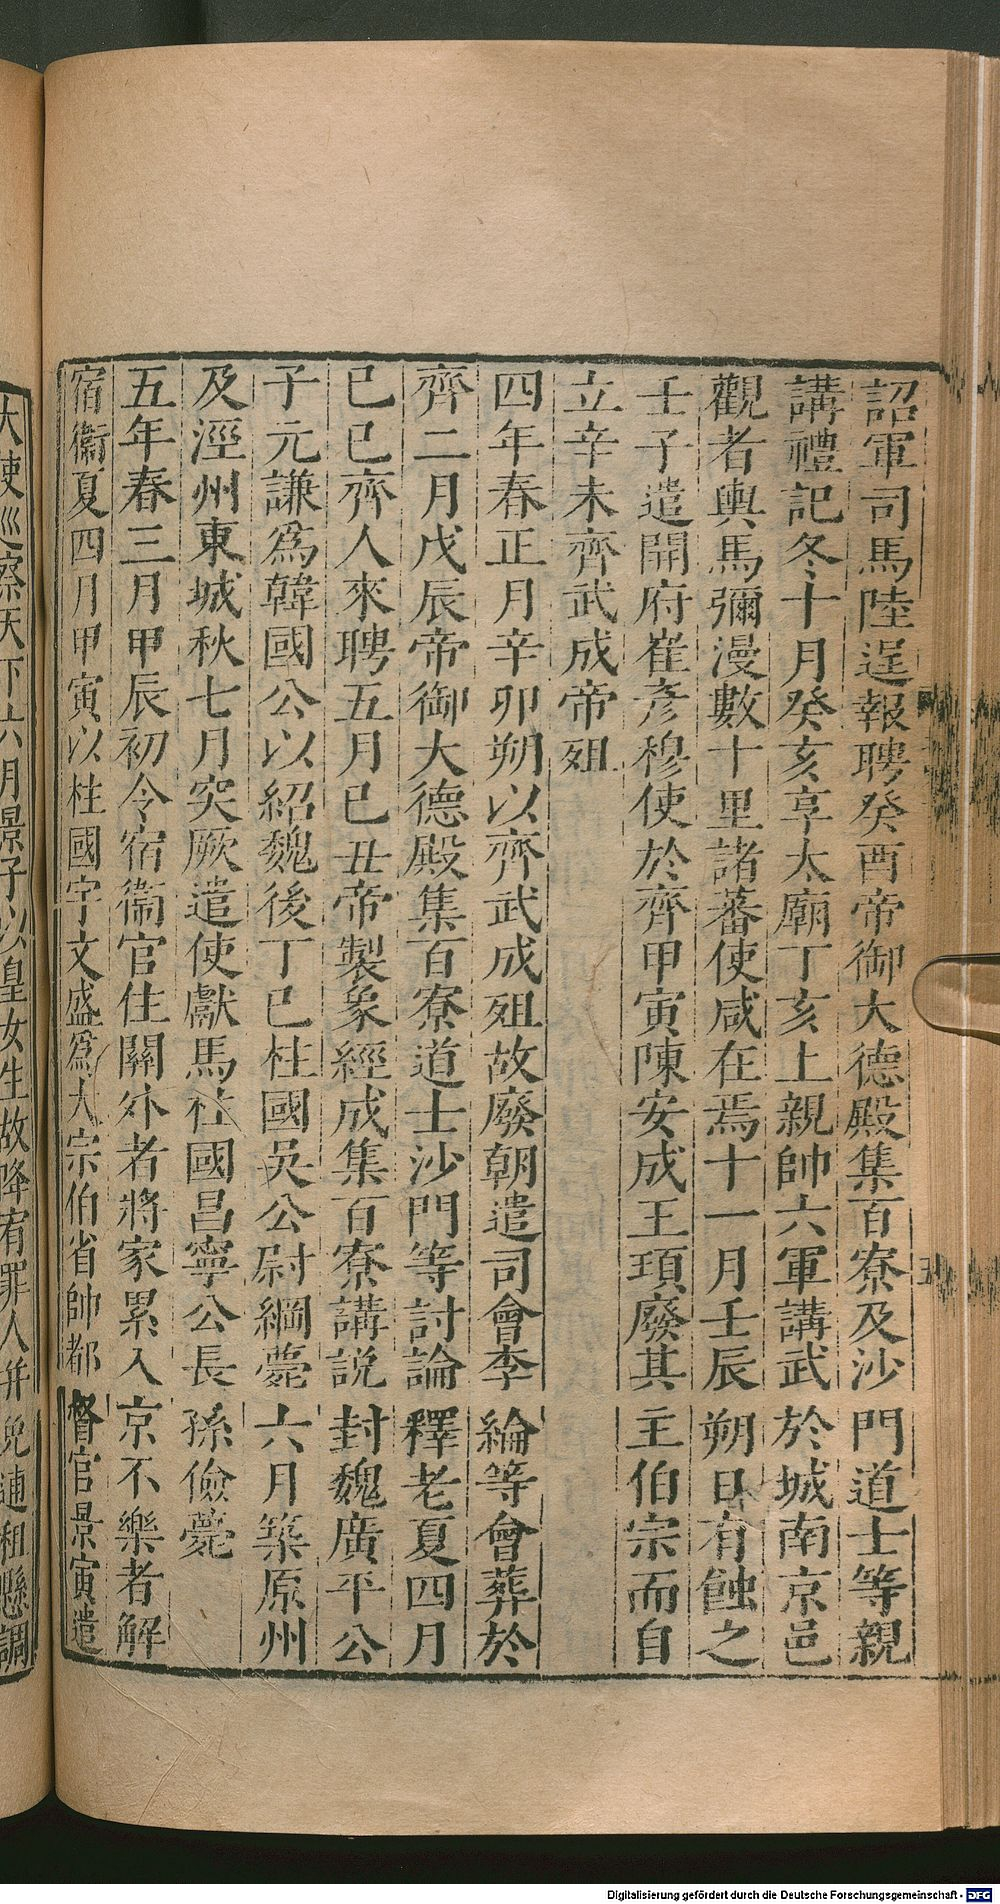 詔軍司馬陸逞報聘癸酉帝御大德殿集百寮及沙門道士等親
講禮記冬十月癸亥享太廟丁亥上親帥六軍講武於城南京邑
觀者輿馬彌漫數十里諸蕃使咸在焉十一月壬辰朔日有蝕之
壬子遣開府崔彥穆使於齊甲寅陳安成王頊廢其主伯宗而自
立辛未齊武成帝殂
四年春正月辛卯朔以齊武成殂故廢朝遣司會李綸等會葬於
齊二月戊辰帝御大德殿集百寮道士沙門等討論釋老夏四月
己巳齊人來聘五月己丑帝製象經成集百寮講説封魏廣平公
子元謙爲韓國公以紹魏後丁巳柱國吳公尉綱薨六月築原州
及涇州東城秋七月突厥遣使獻馬柱國昌寧公長孫儉薨
五年春三月甲辰初令宿衞官住關外者將家累入京不樂者解
宿衞夏四月甲寅以柱國宇文盛爲大宗伯省帥都督官景寅遣
大使巡察天下六月景子以皇女生故降宥罪人并免逋租懸調
Digitalisierung gefördert durch die Deutsche Forschungsgemeinschaft - DFG